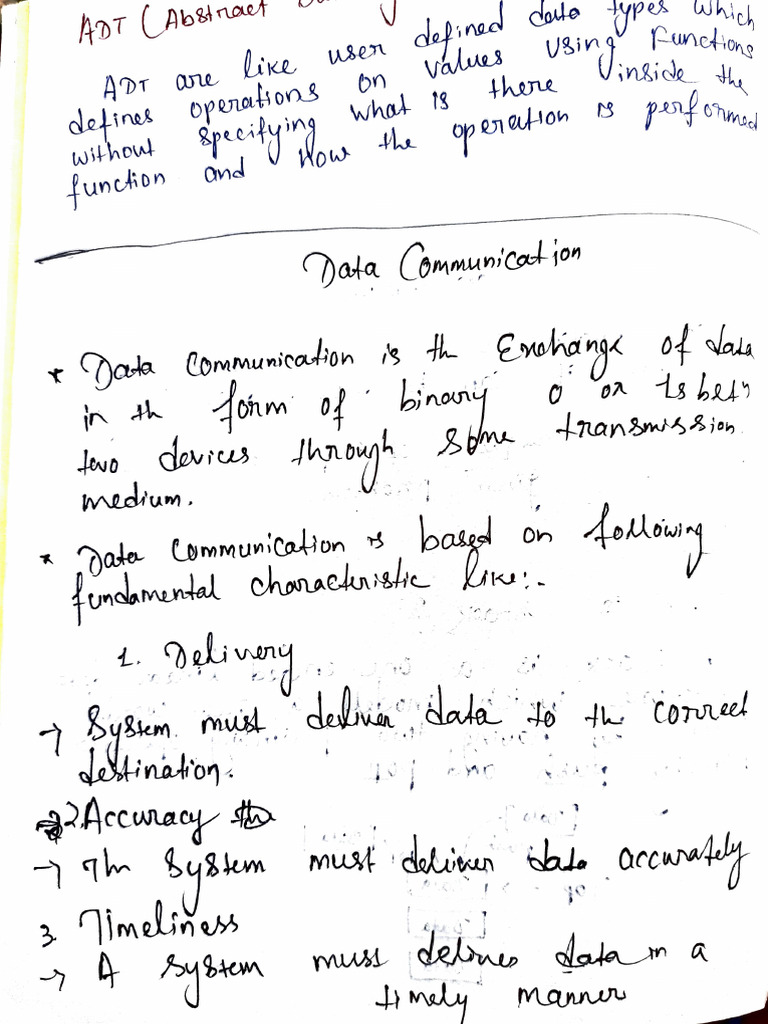 ADT (Abstract
ADT are like user defined data types which
defines operations on values using Functions
without specifying what is there inside the
function and How the operation is performed
Data Communication
* Data Communication is the Exchange of data
in the form of binary 0 or 1s betn
two devices through some transmission
medium.
* Data Communication is based on following
fundamental characteristic like:-
1. Delivery
→ System must deliver data to the correct
destination.
2. Accuracy
→ The System must deliver data accurately
3. Timeliness
→ A system must deliver data in a
timely manner